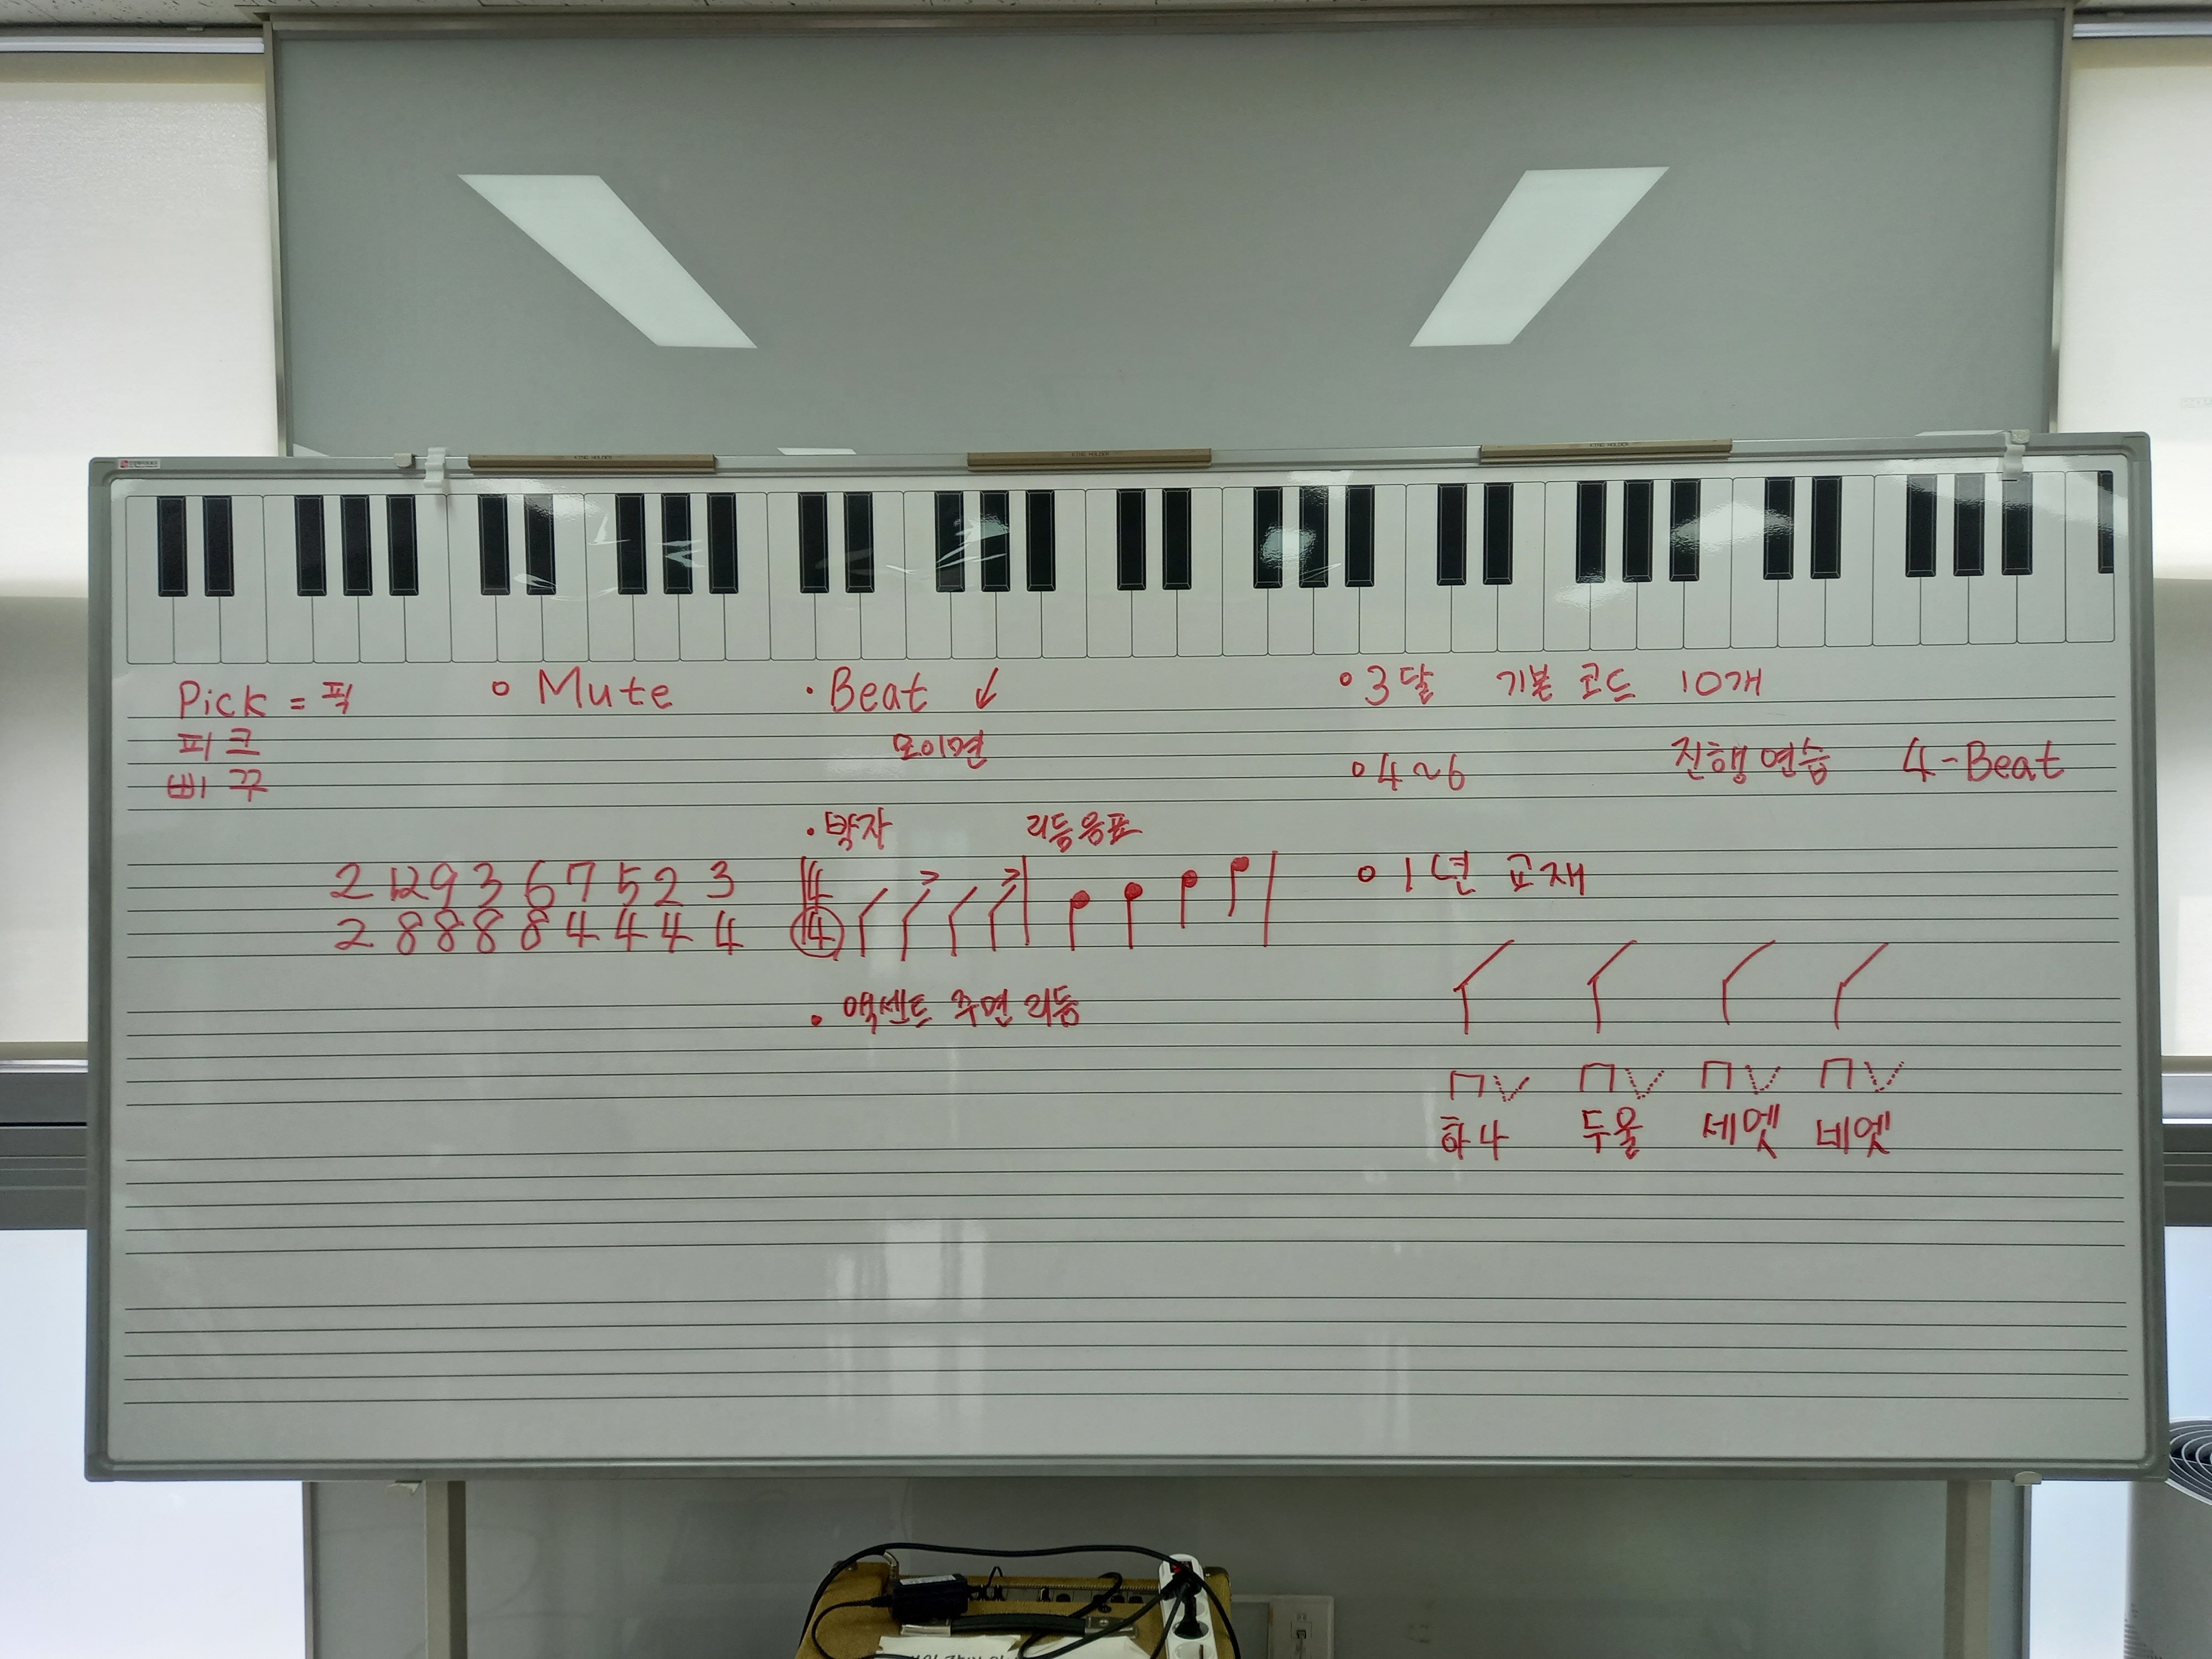 Pick = 픽
피크
삐꾸
Mute
Beat
모이면
박자
리듬음표
2 12 9 3 6 7 5 2 3 4
2 8 8 8 8 4 4 4 4 4
액센트 주면 리듬
3달 기본 코드 10개
4~6 진행연습 4-Beat
1년 교재
하나 두울 세엣 네엣